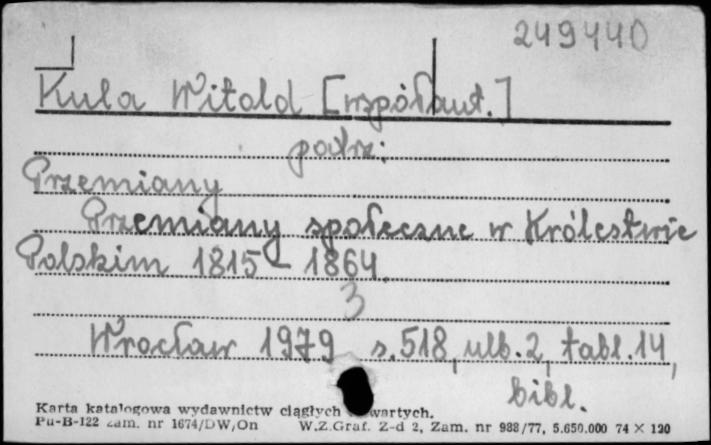 249440
Kula Witold [współaut.]
patrz:
Przemiany
Przemiany społeczne w Królestwie
Polskim 1815 - 1864.
3
Wrocław 1979 s. 518, ulb. 2, tabl. 14,
bibl.
Karta katalogowa wydawnictw ciągłych
Pu-B-122 zam. nr 1674/DW/On W.Z.Graf. Z-d 2, Zam. nr 988/77, 5.650.000 74 × 120